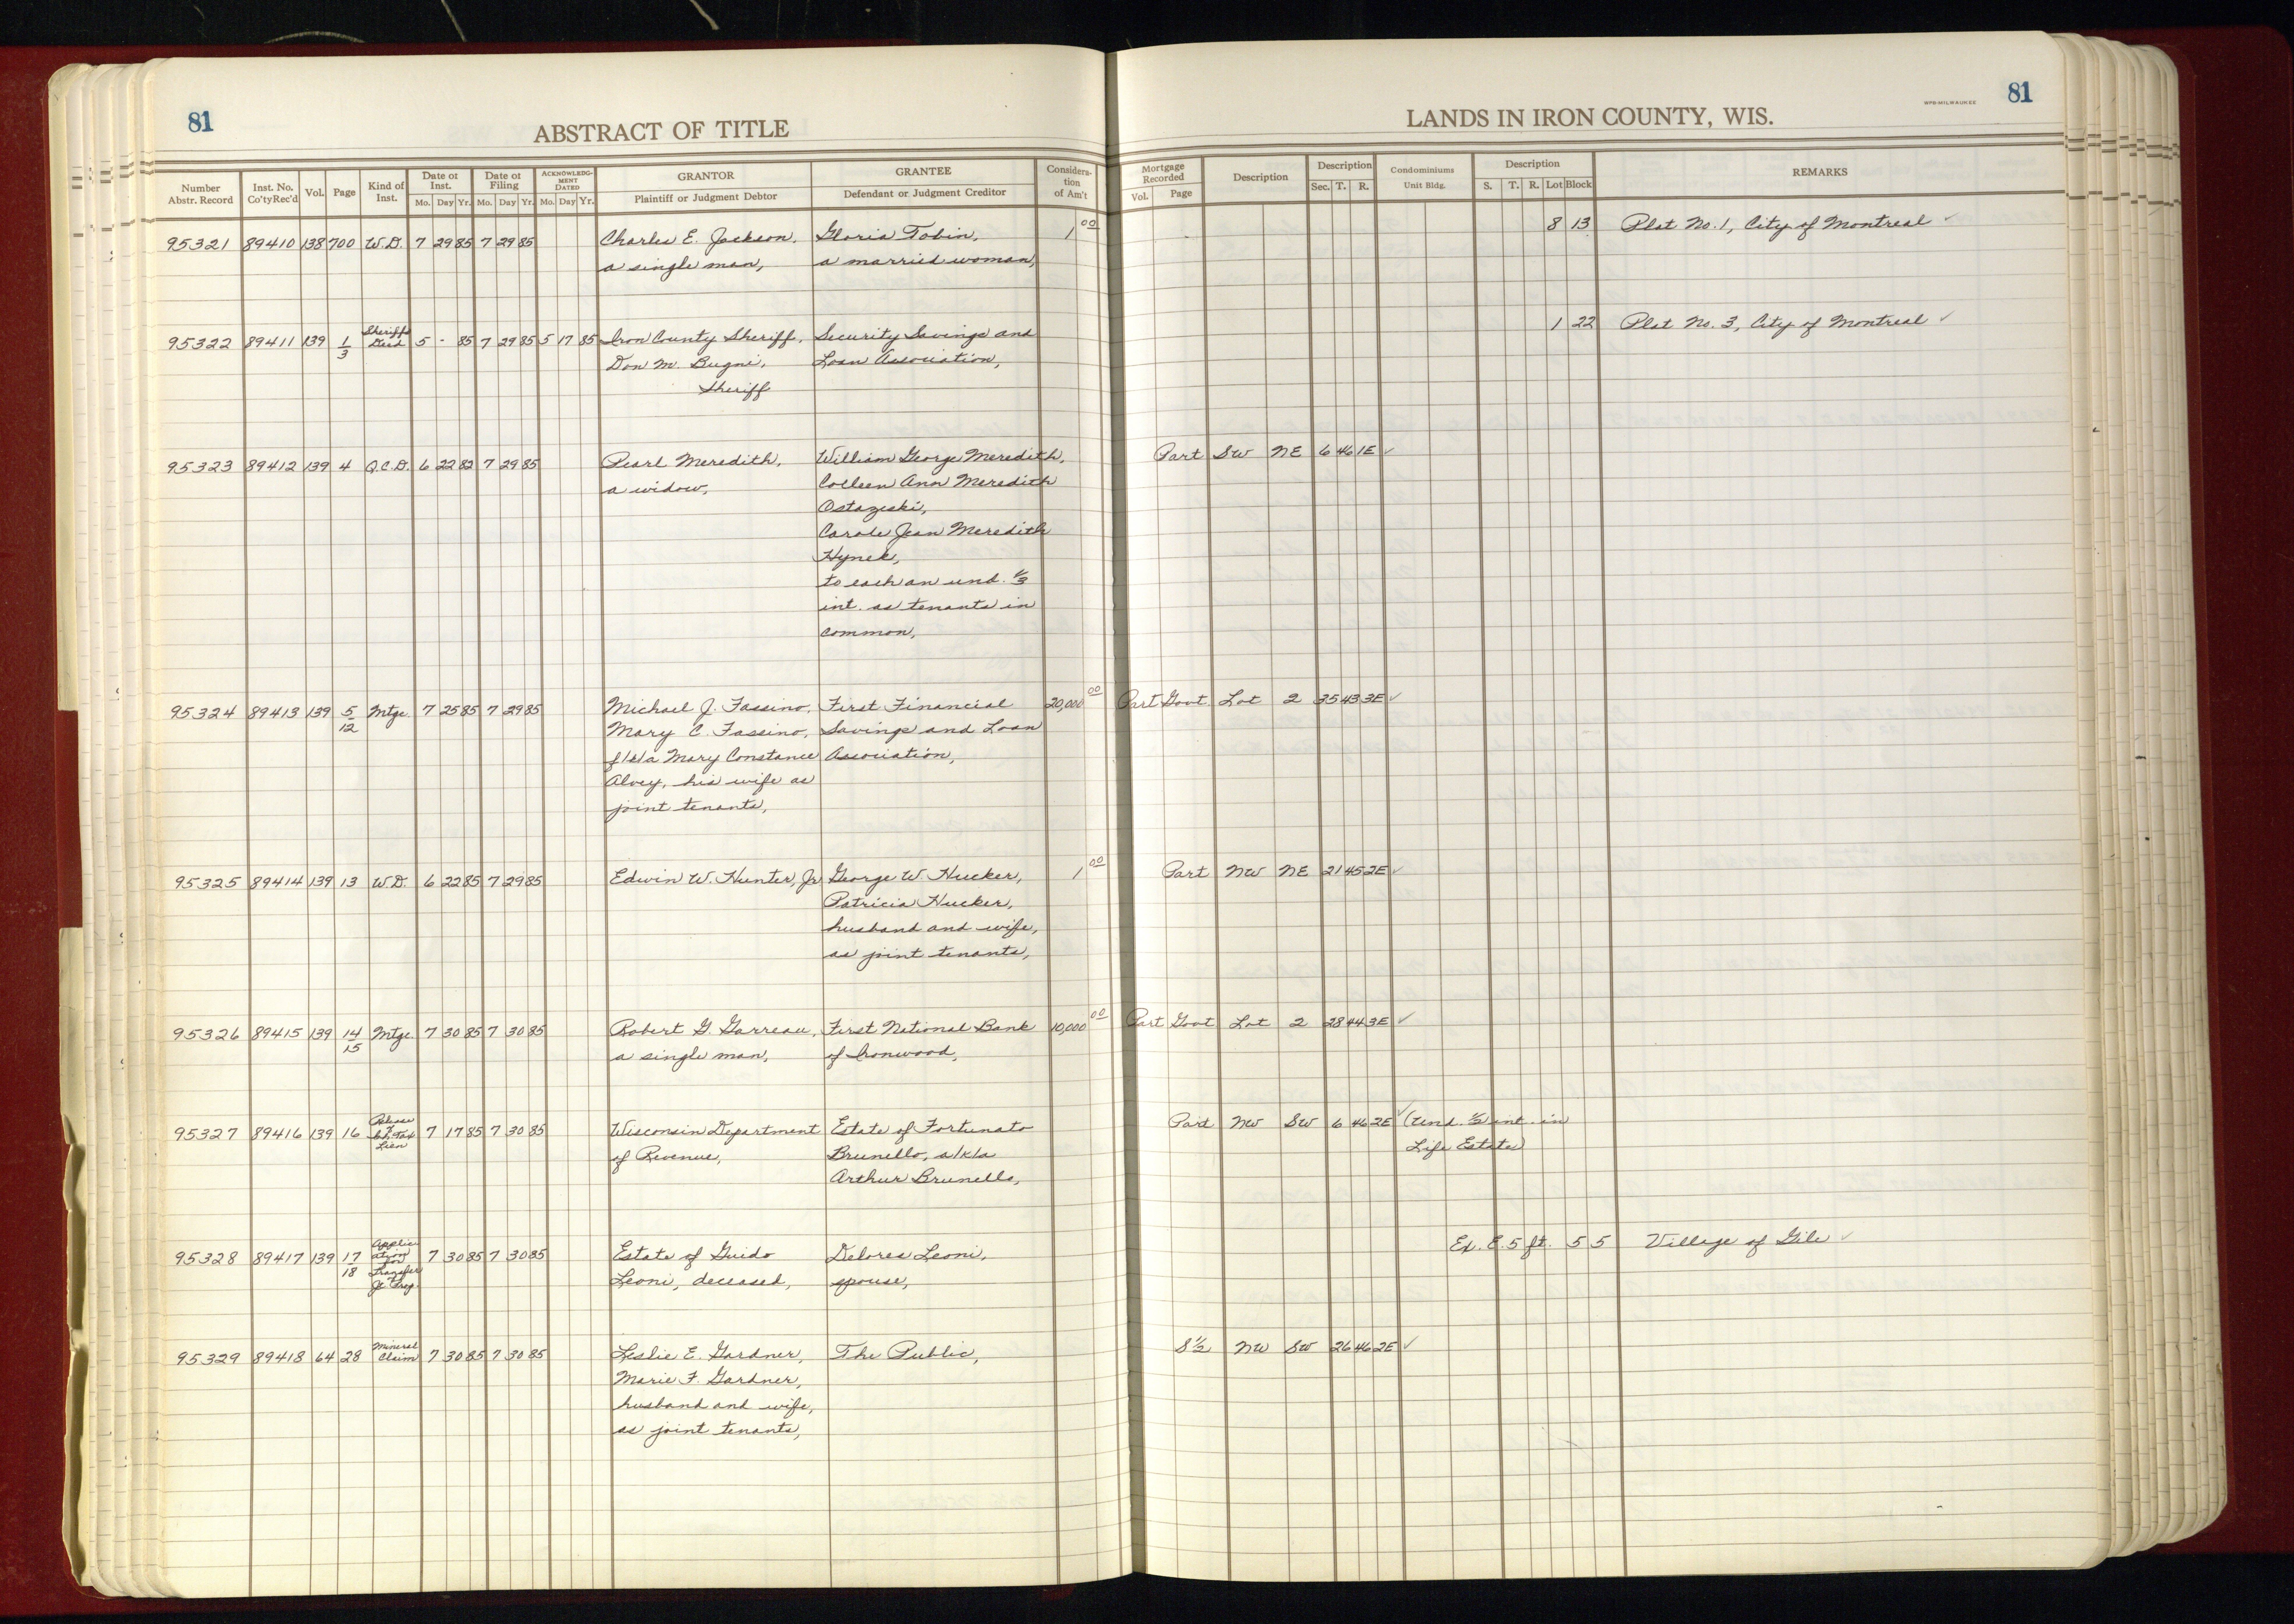 81
ABSTRACT OF TITLE
LANDS IN IRON COUNTY, WIS.
WPB-MILWAUKEE
81
Number Abstr. Record | Inst. No. Co'ty Rec'd | Vol. | Page | Kind of Inst. | Date of Inst. Mo. Day Yr. | Date of Filing Mo. Day Yr. | ACKNOWLEDGMENT DATED Mo. Day Yr. | GRANTOR Plaintiff or Judgment Debtor | GRANTEE Defendant or Judgment Creditor | Consideration of Am't | Mortgage Recorded Vol. Page | Description | Description Sec. T. R. | Condominiums Unit Bldg. | Description S. T. R. Lot Block | REMARKS
95321 89410 138 700 W.D. 7 29 85 7 29 85 Charles E. Jackson, Gloria Tobin, 1 00 8 13 Plat No. 1, City of Montreal ✓
a single man, a married woman,
95322 89411 139 1/3 Sheriffs Deed 5 - 85 7 29 85 5 17 85 Iron County Sheriff, Security Savings and 1 22 Plat No. 3, City of Montreal ✓
Don M. Bugni, Loan Association,
Sheriff
95323 89412 139 4 Q.C.D. 6 22 82 7 29 85 Pearl Meredith, William George Meredith, Part SW NE 6 46 1E ✓
a widow, Colleen Ann Meredith
Ostazeski,
Carole Jean Meredith
Hynek,
to each an und. 1/3
int. as tenants in
common,
95324 89413 139 5/12 Mtge. 7 25 85 7 29 85 Michael J. Fassino, First Financial 20,000 00 Part Govt Lot 2 35 43 3E ✓
Mary C. Fassino, Savings and Loan
f/k/a Mary Constance Association,
Alvey, his wife as
joint tenants,
95325 89414 139 13 W.D. 6 22 85 7 29 85 Edwin W. Hunter, Jr George W Hucker, 1 00 Part NW NE 21 45 2E ✓
Patricia Hucker,
husband and wife,
as joint tenants,
95326 89415 139 14/15 Mtge. 7 30 85 7 30 85 Robert G. Garreau, First National Bank 10,000 00 Part Govt Lot 2 28 44 3E ✓
a single man, of Ironwood,
95327 89416 139 16 Release of Inh. Tax Lien 7 17 85 7 30 85 Wisconsin Department Estate of Fortunato Part NW SW 6 46 2E ✓ (Und. 1/2 int. in
of Revenue, Brunello, a/k/a Life Estate)
Arthur Brunello,
95328 89417 139 17/18 Application for Transfer Jt. Prop. 7 30 85 7 30 85 Estate of Guido Delores Leoni, Ex. E. 5 ft. 5 5 Village of Gile ✓
Leoni, deceased, spouse,
95329 89418 64 28 Mineral Claim 7 30 85 7 30 85 Leslie E. Gardner, The Public, S 1/2 NW SW 26 46 2E ✓
Marie F. Gardner,
husband and wife,
as joint tenants,